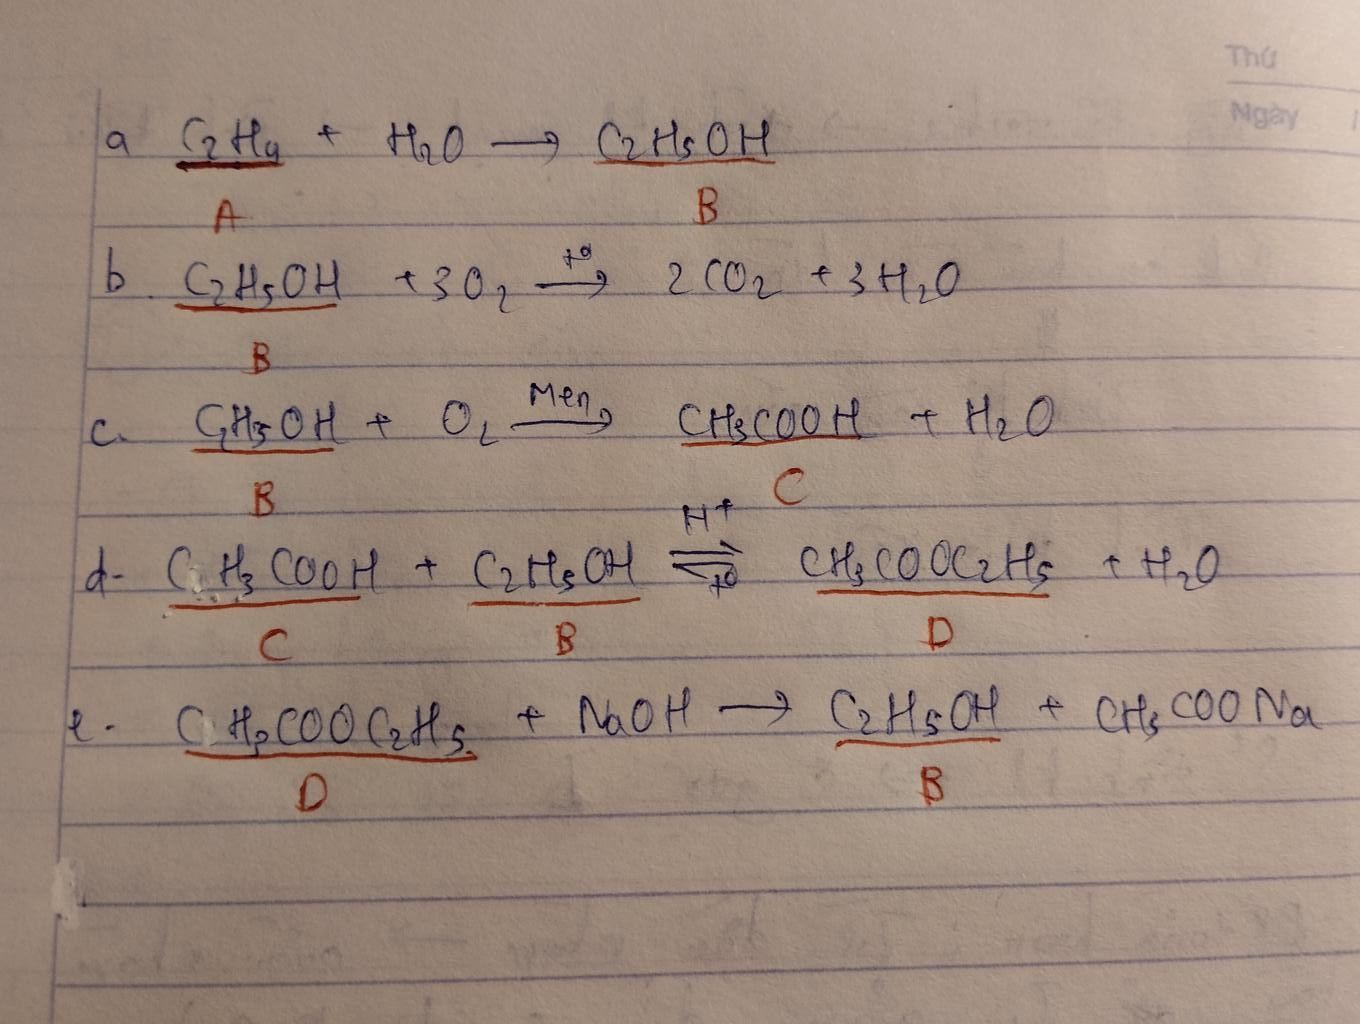 Thứ
Ngày
a C2H4 + H2O → C2H5OH
A B
b. C2H5OH + 3O2 →(t°) 2CO2 + 3H2O
B
c. C2H5OH + O2 →(Men) CH3COOH + H2O
B C
d- CH3COOH + C2H5OH ⇌(H+, t°) CH3COOC2H5 + H2O
C B D
e- CH3COOC2H5 + NaOH → C2H5OH + CH3COONa
D B